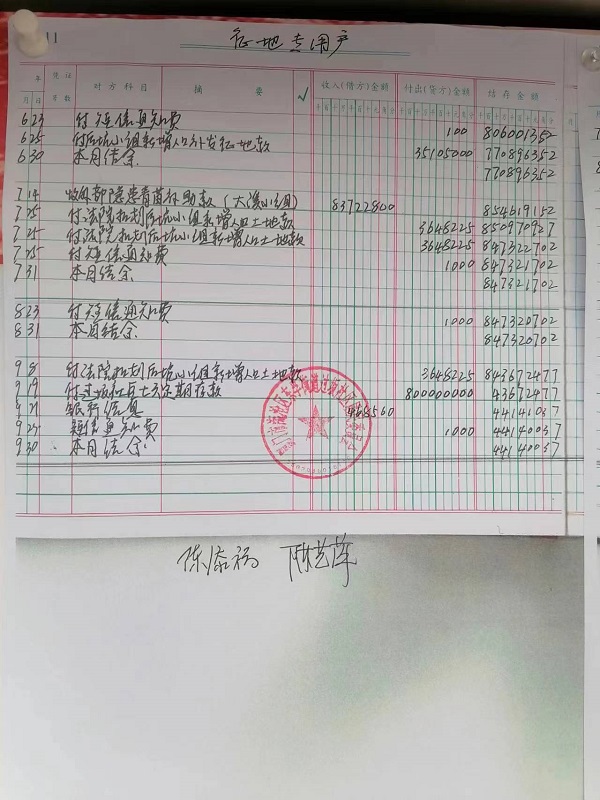 11
征地专用户
年 凭证 对方科目 摘要 √ 收入(借方)金额 付出(贷方)金额 结存金额
月 日 号数 千百十万千百十元角分 千百十万千百十元角分 千百十万千百十元角分
6 23 付短信通知费 100 806001352
6 25 付后坑小组新增人口补发征地款 35105000 770896352
6 30 本月结余 770896352
7 14 (大溪小组) 83722800 854619152
7 25 付法院扣划后坑小组新增人口土地款 3648225 850970927
7 25 付法院扣划后坑小组新增人口土地款 3648225 847322702
7 25 付短信通知费 1000 847321702
7 31 本月结余 847321702
8 23 付短信通知费 1000 847320702
8 31 本月结余 847320702
9 8 付法院扣划后坑小组新增人口土地款 3648225 843672477
9 19 定期存款 800000000 43672477
9 21 银行信息 468560 44141037
9 25 短信通知费 1000 44140037
9 30 本月结余 44140037